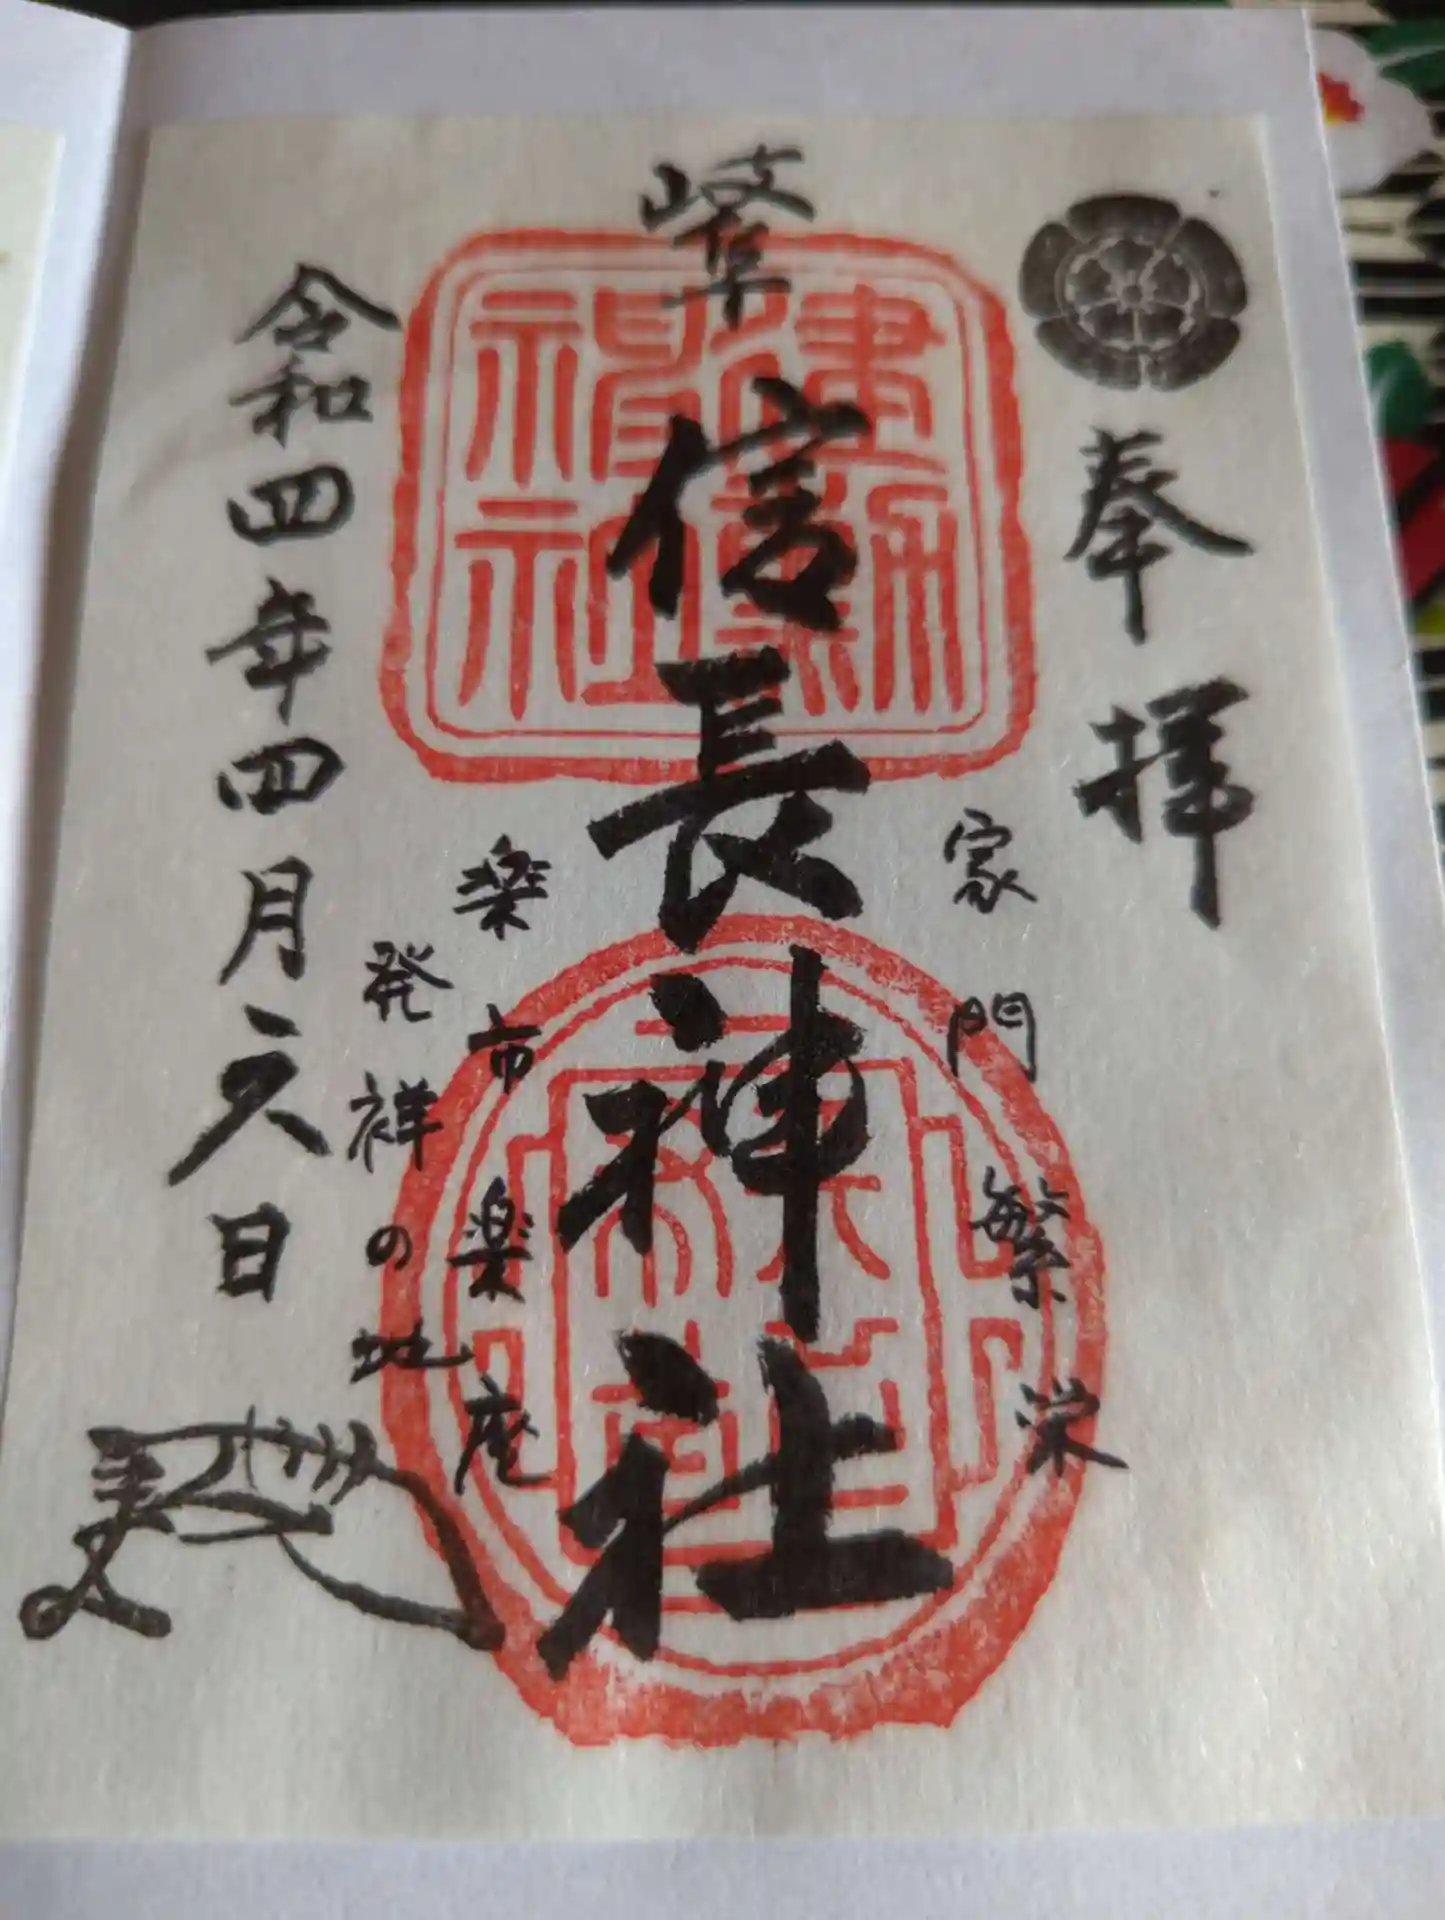 奉拝
家門繁栄
岐阜
信長神社
建勲
神社
楽市楽座
発祥の地
令和四年四月六日